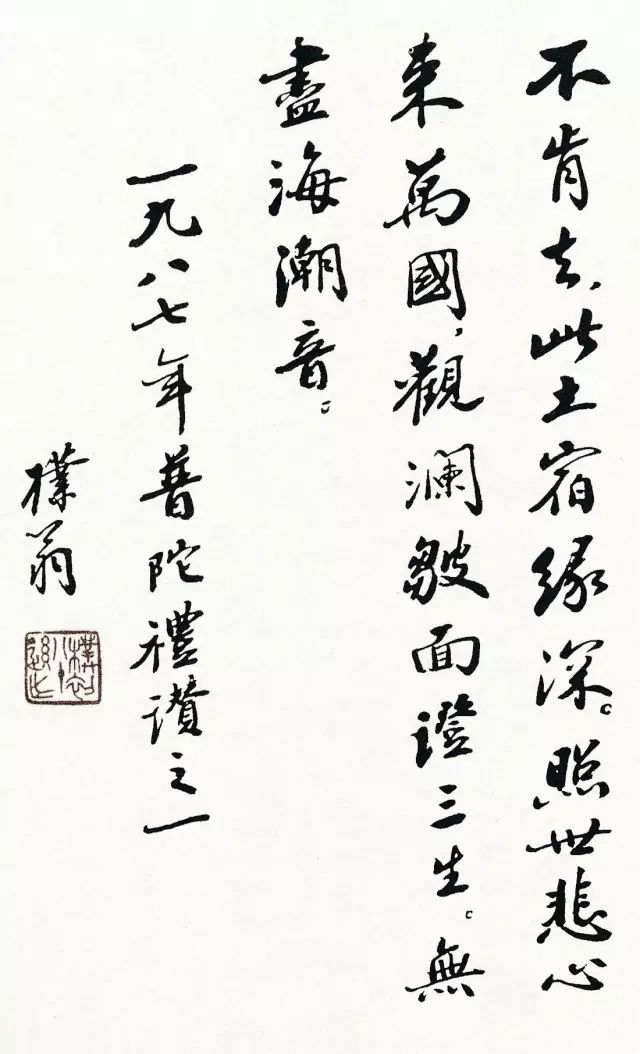 不肯去,此土宿緣深。照世悲心
来萬國,觀澜皺面證三生。無
盡海潮音。
一九八七年普陀禮讃之一
樸翁